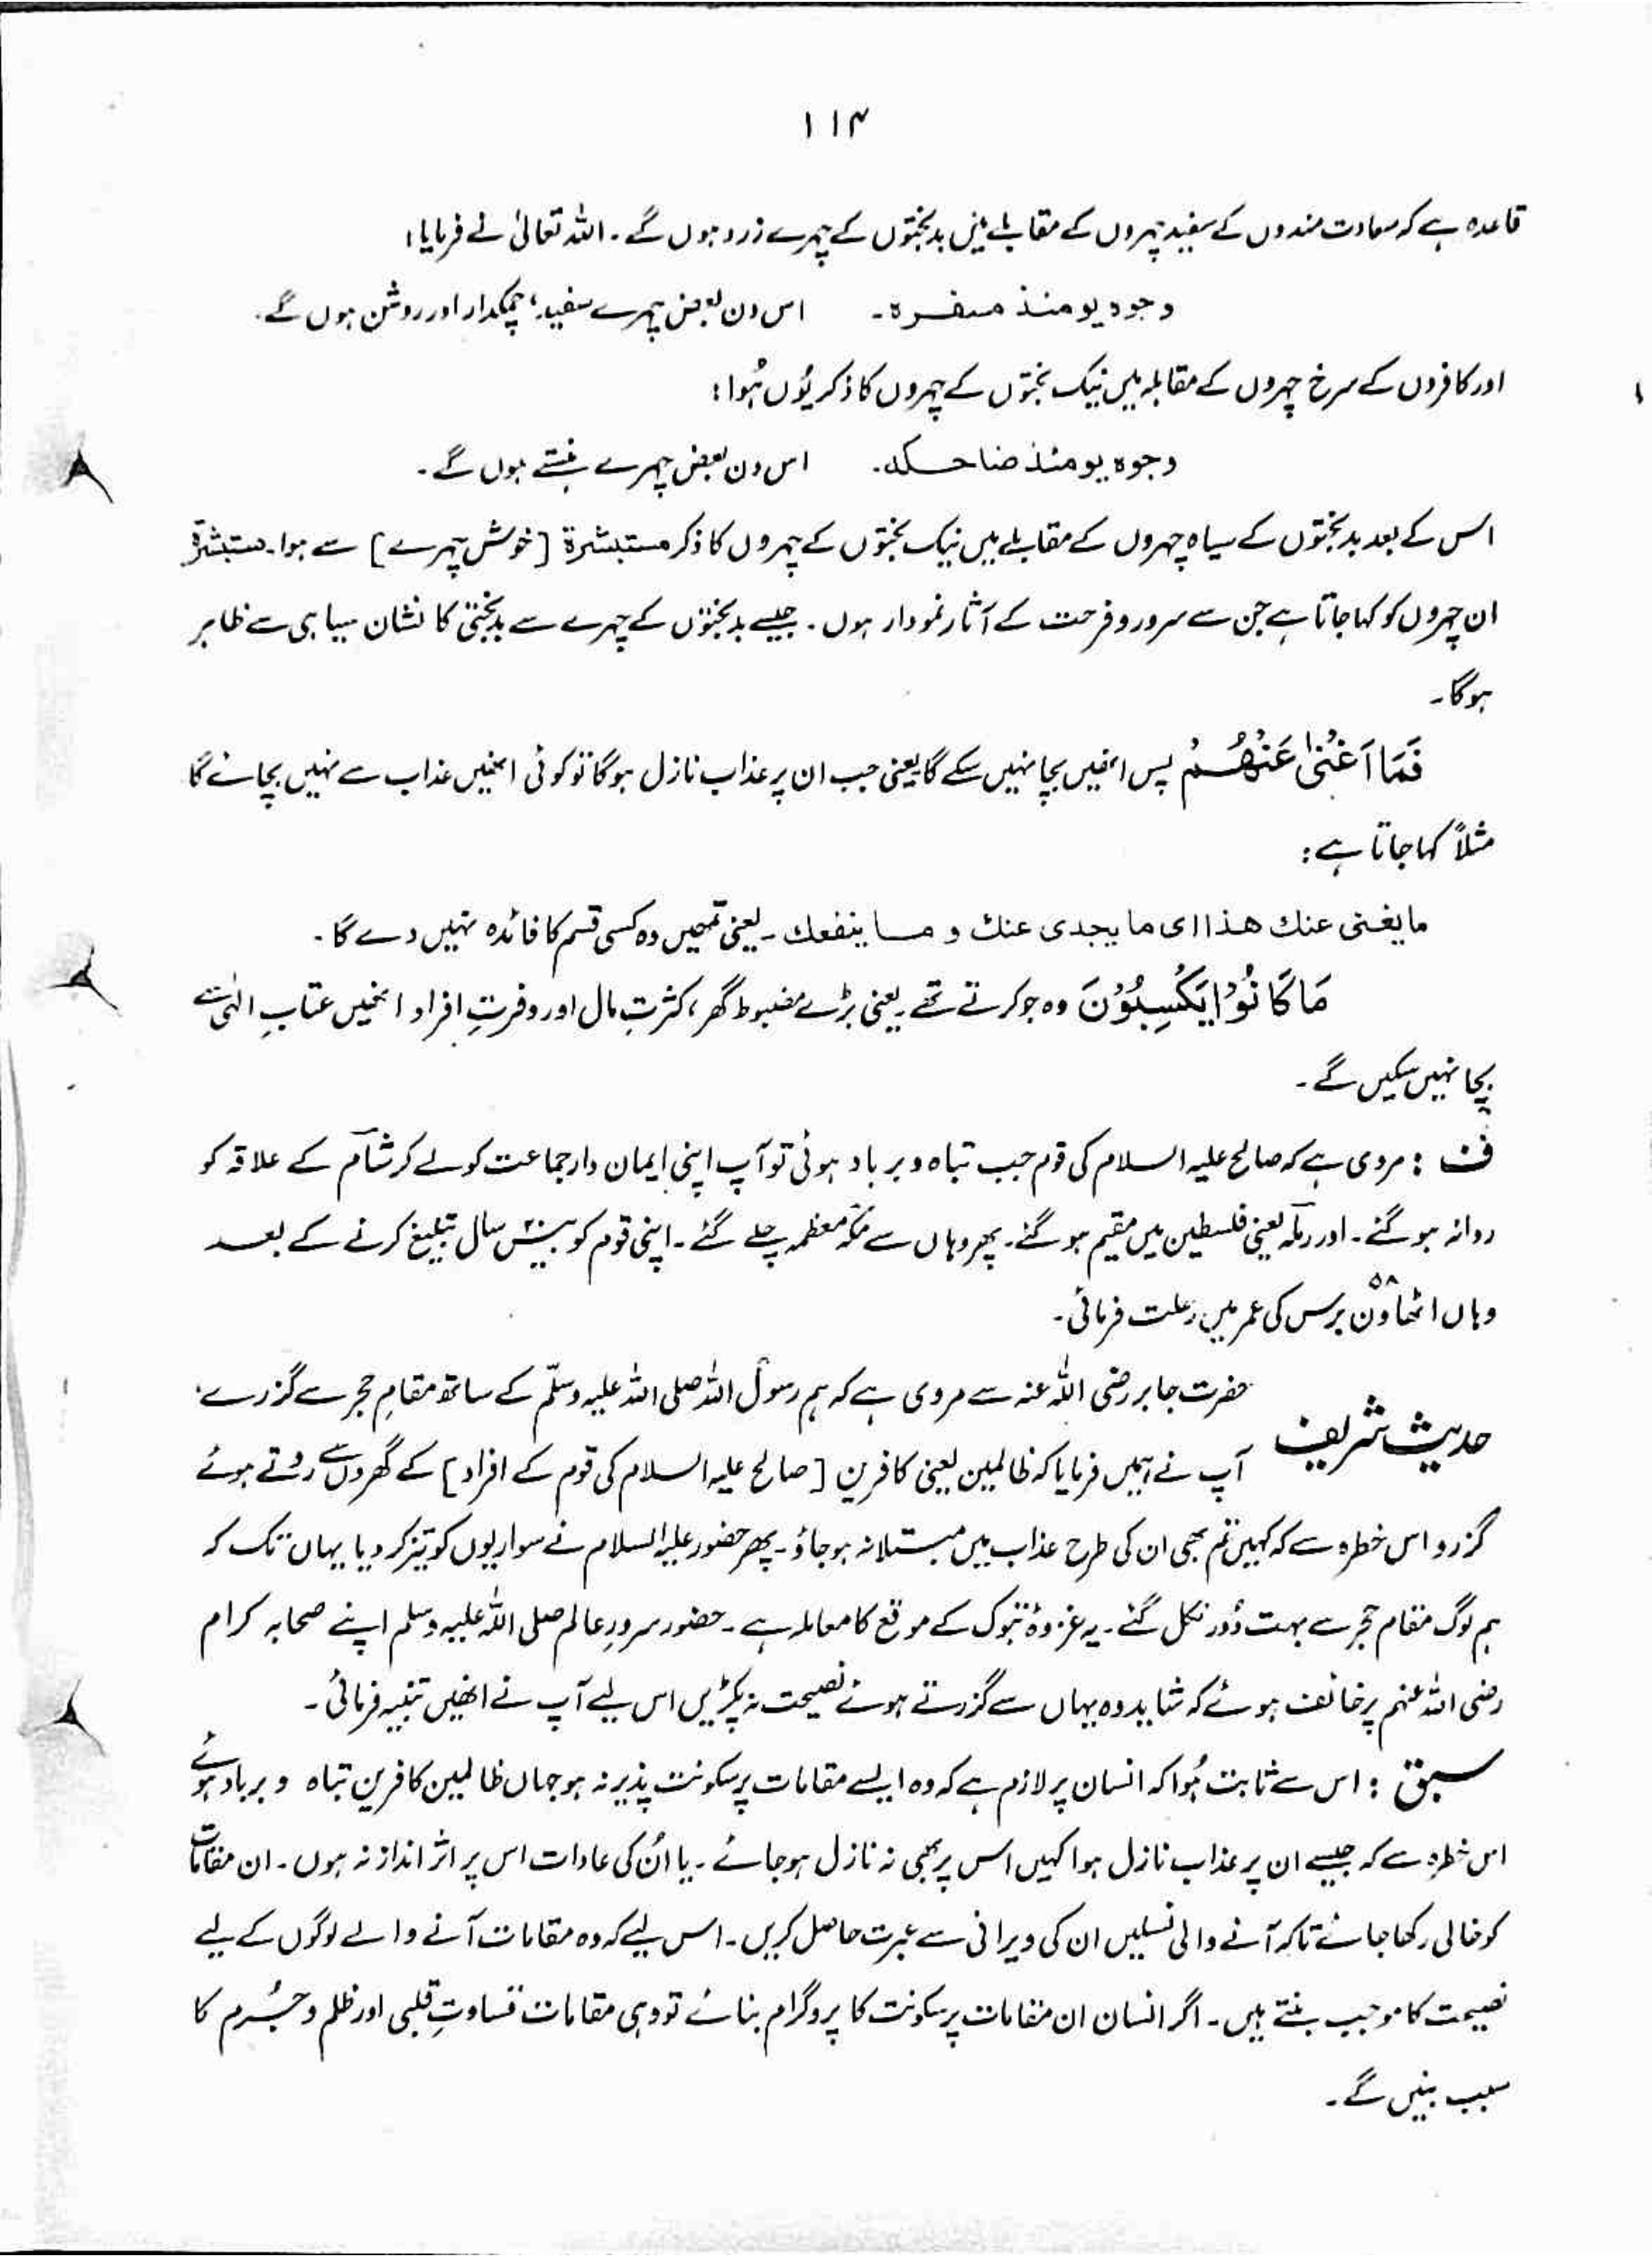 ۱۱۴
قاعدہ ہے کہ سعادت مندوں کے سفید چہروں کے مقابلے میں بدبختوں کے چہرے زرد ہوں گے۔ اللہ تعالیٰ نے فرمایا:
وجوہ یومئذ مسفرہ۔ اس دن بعض چہرے سفید، چمکدار اور روشن ہوں گے۔
اور کافروں کے سرخ چہروں کے مقابلہ میں نیک بختوں کے چہروں کا ذکر یُوں ہُوا:
وجوہ یومئذ ضاحکہ۔ اس دن بعض چہرے ہنستے ہوں گے۔
اس کے بعد بدبختوں کے سیاہ چہروں کے مقابلے میں نیک بختوں کے چہروں کا ذکر مستبشرۃ [خوش چہرے] سے ہوا۔ مستبشرۃ
ان چہروں کو کہا جاتا ہے جن سے سرور و فرحت کے آثار نمودار ہوں۔ جیسے بدبختوں کے چہرے سے بدبختی کا نشان سیاہی سے ظاہر
ہوگا۔
فَمَا اَغْنٰی عَنْهُمْ پس انھیں بچا نہیں سکے گا یعنی جب ان پر عذاب نازل ہوگا تو کوئی انھیں عذاب سے نہیں بچائے گا
مثلاً کہا جاتا ہے:
ما یغنی عنك ھذا ای ما یجدی عنك و ما ینفعك۔ یعنی تمھیں وہ کسی قسم کا فائدہ نہیں دے گا۔
مَا كَانُوْا یَكْسِبُوْنَ وہ جو کرتے تھے۔ یعنی بڑے مضبوط گھر، کثرتِ مال اور وفرتِ افراد انھیں عتابِ الٰہی سے
بچا نہیں سکیں گے۔
ف : مروی ہے کہ صالح علیہ السلام کی قوم جب تباہ و برباد ہوئی تو آپ اپنی ایمان دار جماعت کو لے کر شام کے علاقہ کو
روانہ ہو گئے۔ اور رملہ یعنی فلسطین میں مقیم ہو گئے۔ پھر وہاں سے مکہ معظمہ چلے گئے۔ اپنی قوم کو بیس۲۰ سال تبلیغ کرنے کے بعد
وہاں اٹھاون۵۸ برس کی عمر میں رحلت فرمائی۔
حدیث شریف حضرت جابر رضی اللہ عنہ سے مروی ہے کہ ہم رسول اللہ صلی اللہ علیہ وسلّم کے ساتھ مقامِ حجر سے گزرے۔
آپ نے ہمیں فرمایا کہ ظالمین یعنی کافرین [صالح علیہ السلام کی قوم کے افراد] کے گھروں سے روتے ہوئے
گزرو اس خطرہ سے کہ کہیں تم بھی ان کی طرح عذاب میں مبتلا نہ ہو جاؤ۔ پھر حضور علیہ السلام نے سواریوں کو تیز کر دیا یہاں تک کہ
ہم لوگ مقام حجر سے بہت دُور نکل گئے۔ یہ غزوۂ تبوک کے موقع کا معاملہ ہے۔ حضور سرورِ عالم صلی اللہ علیہ وسلم اپنے صحابہ کرام
رضی اللہ عنہم پر خائف ہوئے کہ شاید وہ یہاں سے گزرتے ہوئے نصیحت نہ پکڑیں اس لیے آپ نے انھیں تنبیہ فرمائی۔
سبق : اس سے ثابت ہُوا کہ انسان پر لازم ہے کہ وہ ایسے مقامات پر سکونت پذیر نہ ہو جہاں ظالمین کافرین تباہ و برباد ہوئے
اس خطرہ سے کہ جیسے ان پر عذاب نازل ہوا کہیں اس پر بھی نہ نازل ہو جائے۔ یا اُن کی عادات اس پر اثر انداز نہ ہوں۔ ان مقامات
کو خالی رکھا جائے تاکہ آنے والی نسلیں ان کی ویرانی سے عبرت حاصل کریں۔ اس لیے کہ وہ مقامات آنے والے لوگوں کے لیے
نصیحت کا موجب بنتے ہیں۔ اگر انسان ان مقامات پر سکونت کا پروگرام بنائے تو وہی مقامات قساوتِ قلبی اور ظلم و جُرم کا
سبب بنیں گے۔